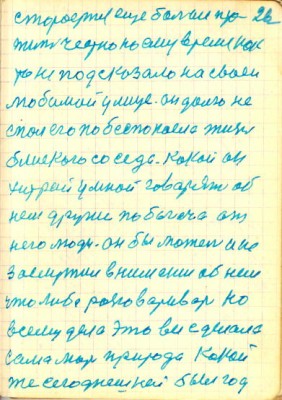 сторости еще больше про- 26
тить честно по ему время как
то не подсказало на своей
любимой улице. он долго не
спал его побеспокоела жизн
блиского соседа. какой он
хитрой умной говарят об
нем други побоича от
него люди. он бы может и не
засмртии внимании об нем
что либо разговаривал но
всему дела это вы сделала
сама мар природа какой
же сегоднешней был год